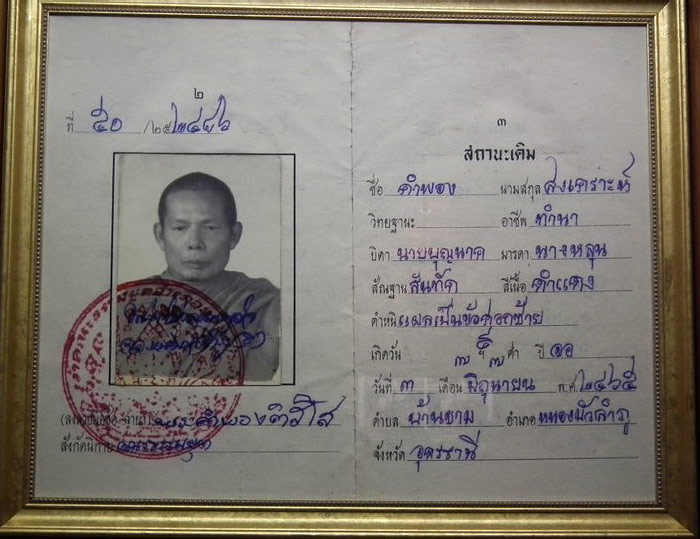 ๒
ที่ ๕๐ /๒๕
(ลงชื่อ พระคำพอง ติสฺโส
สังกัดนิกาย
๓
สถานะเดิม
ชื่อ คำพอง นามสกุล สงเคราะห์
วิทยฐานะ อาชีพ ทำนา
บิดา นายบุญนาค มารดา นางหลุน
สัณฐาน สันทัด สีเนื้อ ดำแดง
ตำหนิ แผลเป็นข้อศอกซ้าย
เกิดวัน ๗ ค่ำ ปี จอ
วันที่ ๓ เดือน มิถุนายน พ.ศ. ๒๔๖๕
ตำบล บ้านขาม อำเภอ หนองบัวลำภู
จังหวัด อุดรธานี